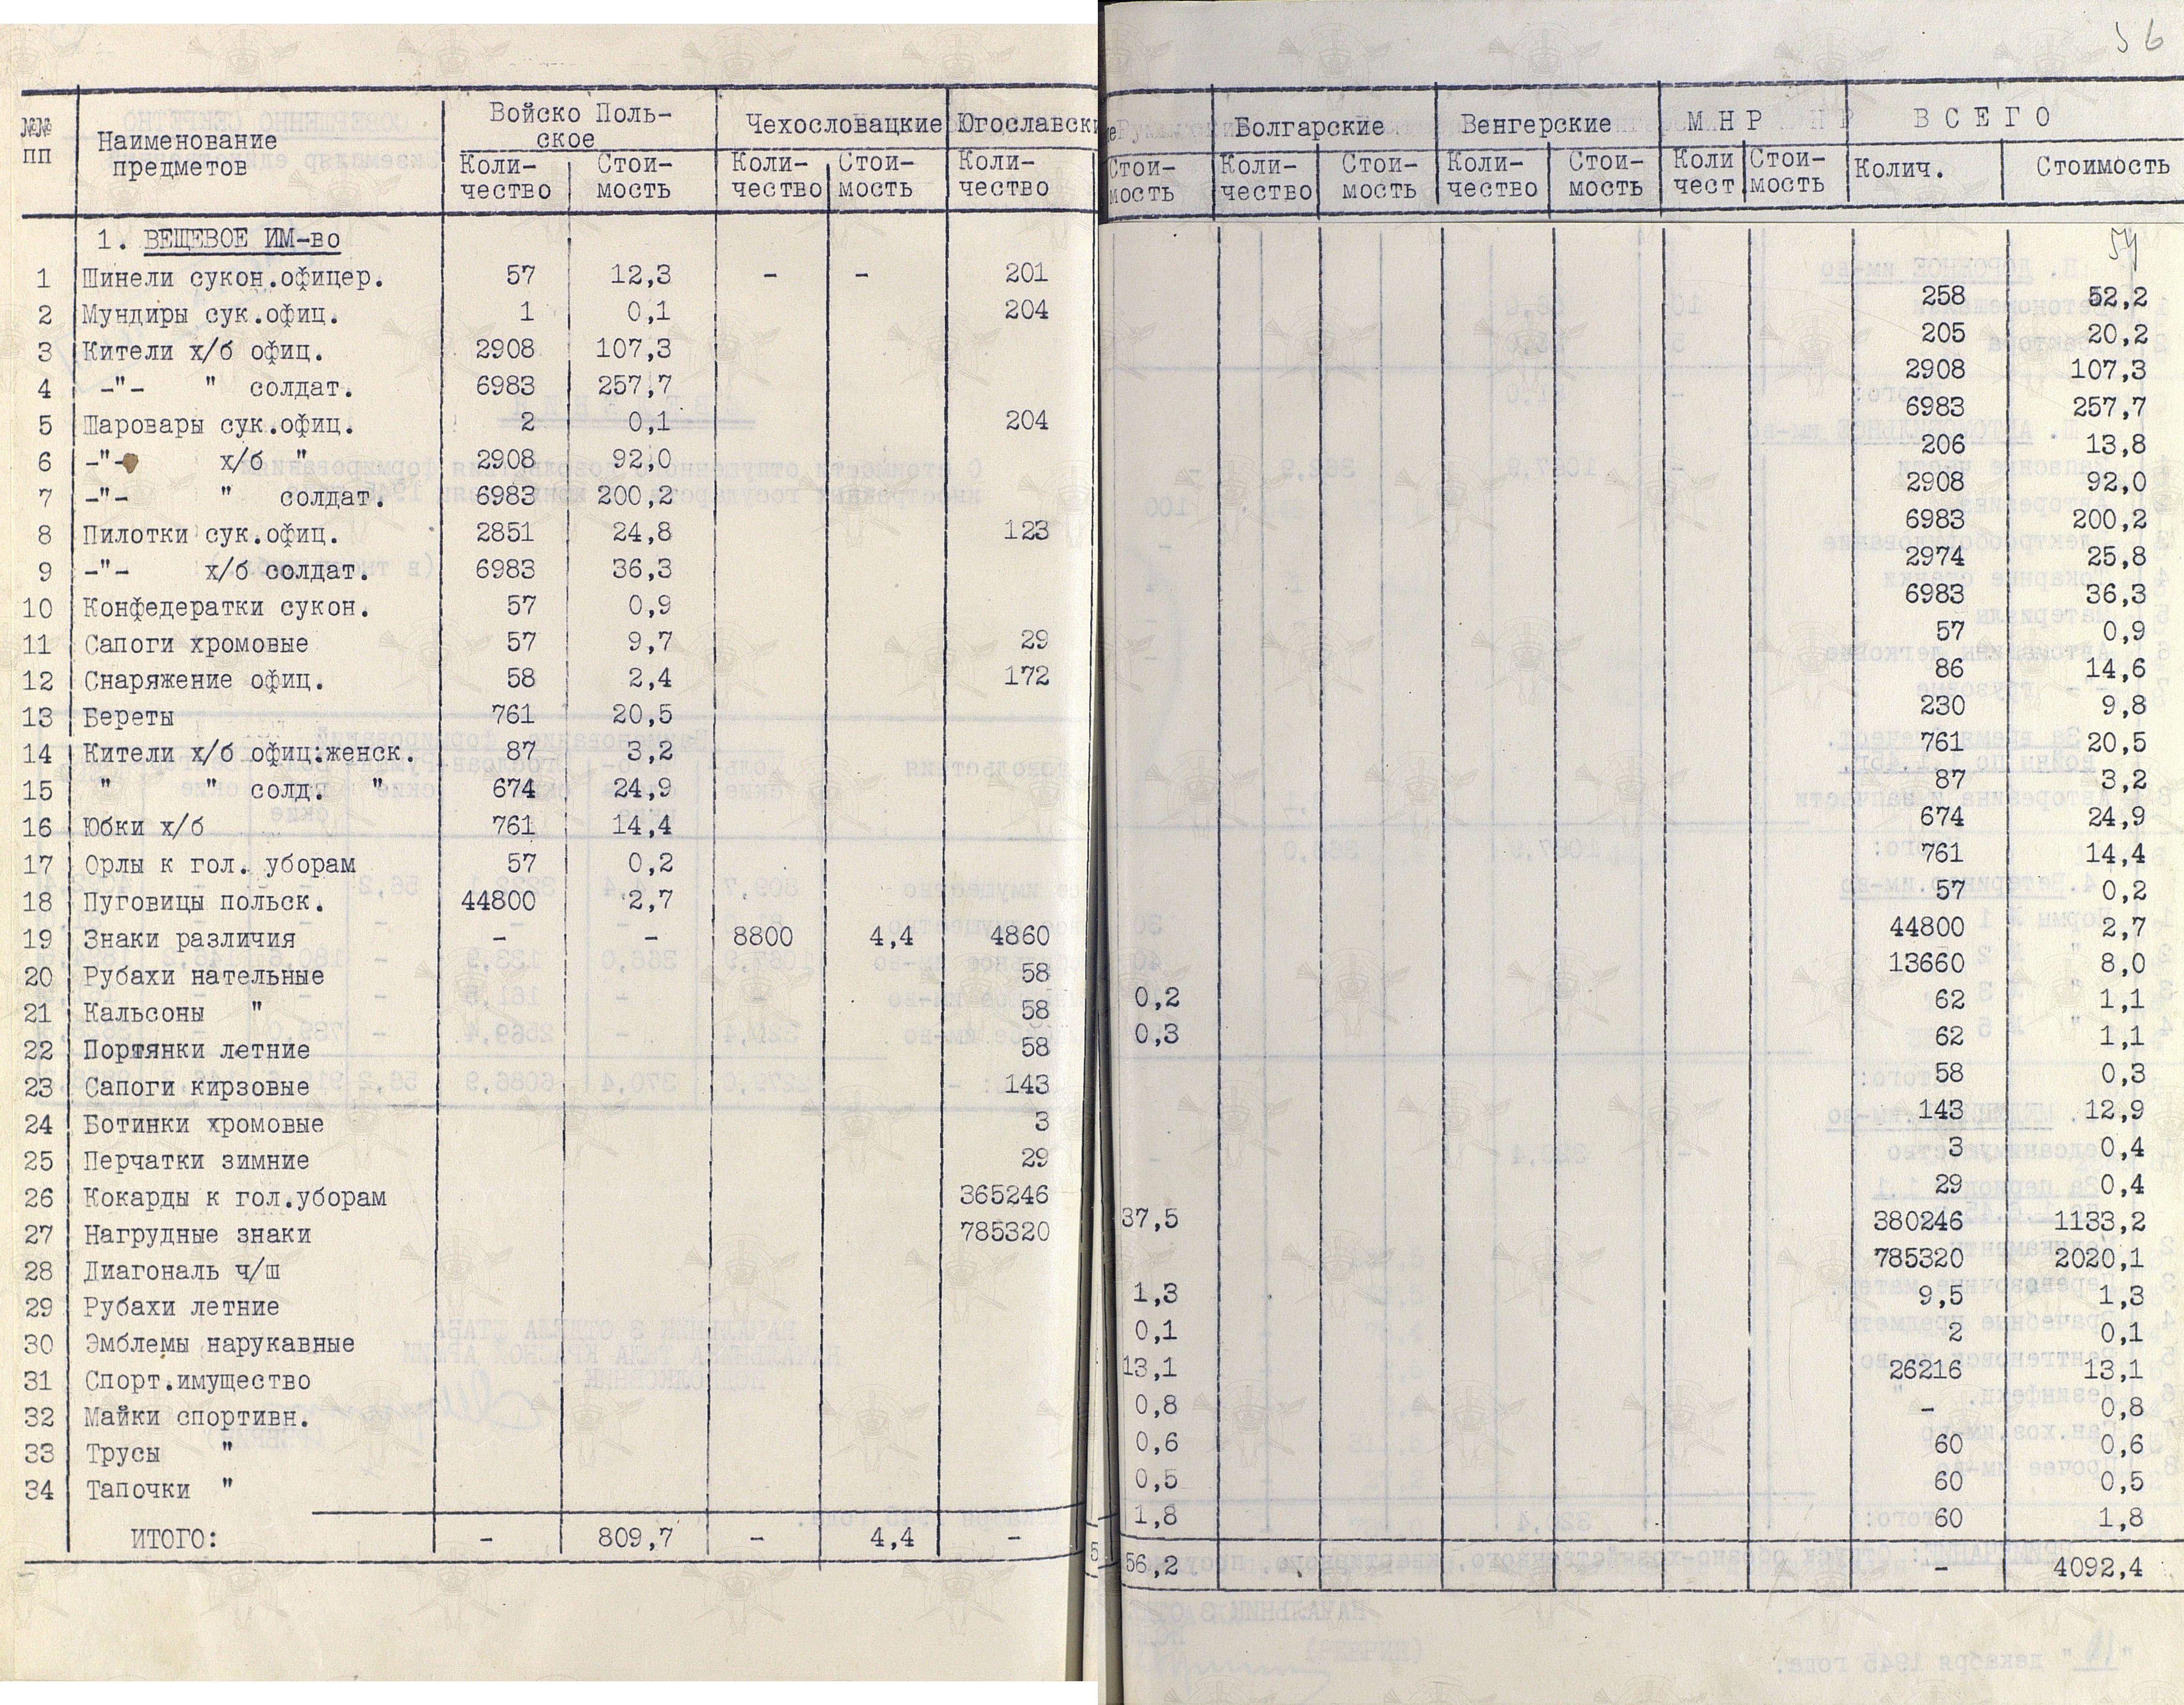 56
№№ пп
Наименование предметов
Войско Польское
Чехословацкие
Югославски
Болгарские
Венгерские
МНР
ВСЕГО
Коли-чество
Стои-мость
Коли-чество
Стои-мость
Коли-чество
Стои-мость
Коли-чество
Стои-мость
Коли-чество
Стои-мость
Коли чест
Стои-мость
Колич.
Стоимость
1. ВЕЩЕВОЕ ИМ-во
1 Шинели сукон.офицер. 57 12,3 - - 201 258 52,2
2 Мундиры сук.офиц. 1 0,1 204 205 20,2
3 Кители х/б офиц. 2908 107,3 2908 107,3
4 -"- " солдат. 6983 257,7 6983 257,7
5 Шаровары сук.офиц. 2 0,1 204 206 13,8
6 -"- х/б " 2908 92,0 2908 92,0
7 -"- " солдат. 6983 200,2 6983 200,2
8 Пилотки сук.офиц. 2851 24,8 123 2974 25,8
9 -"- х/б солдат. 6983 36,3 6983 36,3
10 Конфедератки сукон. 57 0,9 57 0,9
11 Сапоги хромовые 57 9,7 29 86 14,6
12 Снаряжение офиц. 58 2,4 172 230 9,8
13 Береты 761 20,5 761 20,5
14 Кители х/б офиц:женск. 87 3,2 87 3,2
15 " " солд. " 674 24,9 674 24,9
16 Юбки х/б 761 14,4 761 14,4
17 Орлы к гол. уборам 57 0,2 57 0,2
18 Пуговицы польск. 44800 2,7 44800 2,7
19 Знаки различия - - 8800 4,4 4860 13660 8,0
20 Рубахи нательные 58 0,2 62 1,1
21 Кальсоны " 58 0,3 62 1,1
22 Портянки летние 58 58 0,3
23 Сапоги кирзовые 143 143 12,9
24 Ботинки хромовые 3 3 0,4
25 Перчатки зимние 29 29 0,4
26 Кокарды к гол.уборам 365246 37,5 380246 1133,2
27 Нагрудные знаки 785320 785320 2020,1
28 Диагональ ч/ш 1,3 9,5 1,3
29 Рубахи летние 0,1 2 0,1
30 Эмблемы нарукавные 13,1 26216 13,1
31 Спорт.имущество 0,8 - 0,8
32 Майки спортивн. 0,6 60 0,6
33 Трусы " 0,5 60 0,5
34 Тапочки " 1,8 60 1,8
ИТОГО: - 809,7 - 4,4 - 56,2 - 4092,4